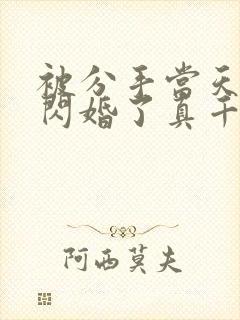 被分手當天
閃婚了真千
阿西莫夫